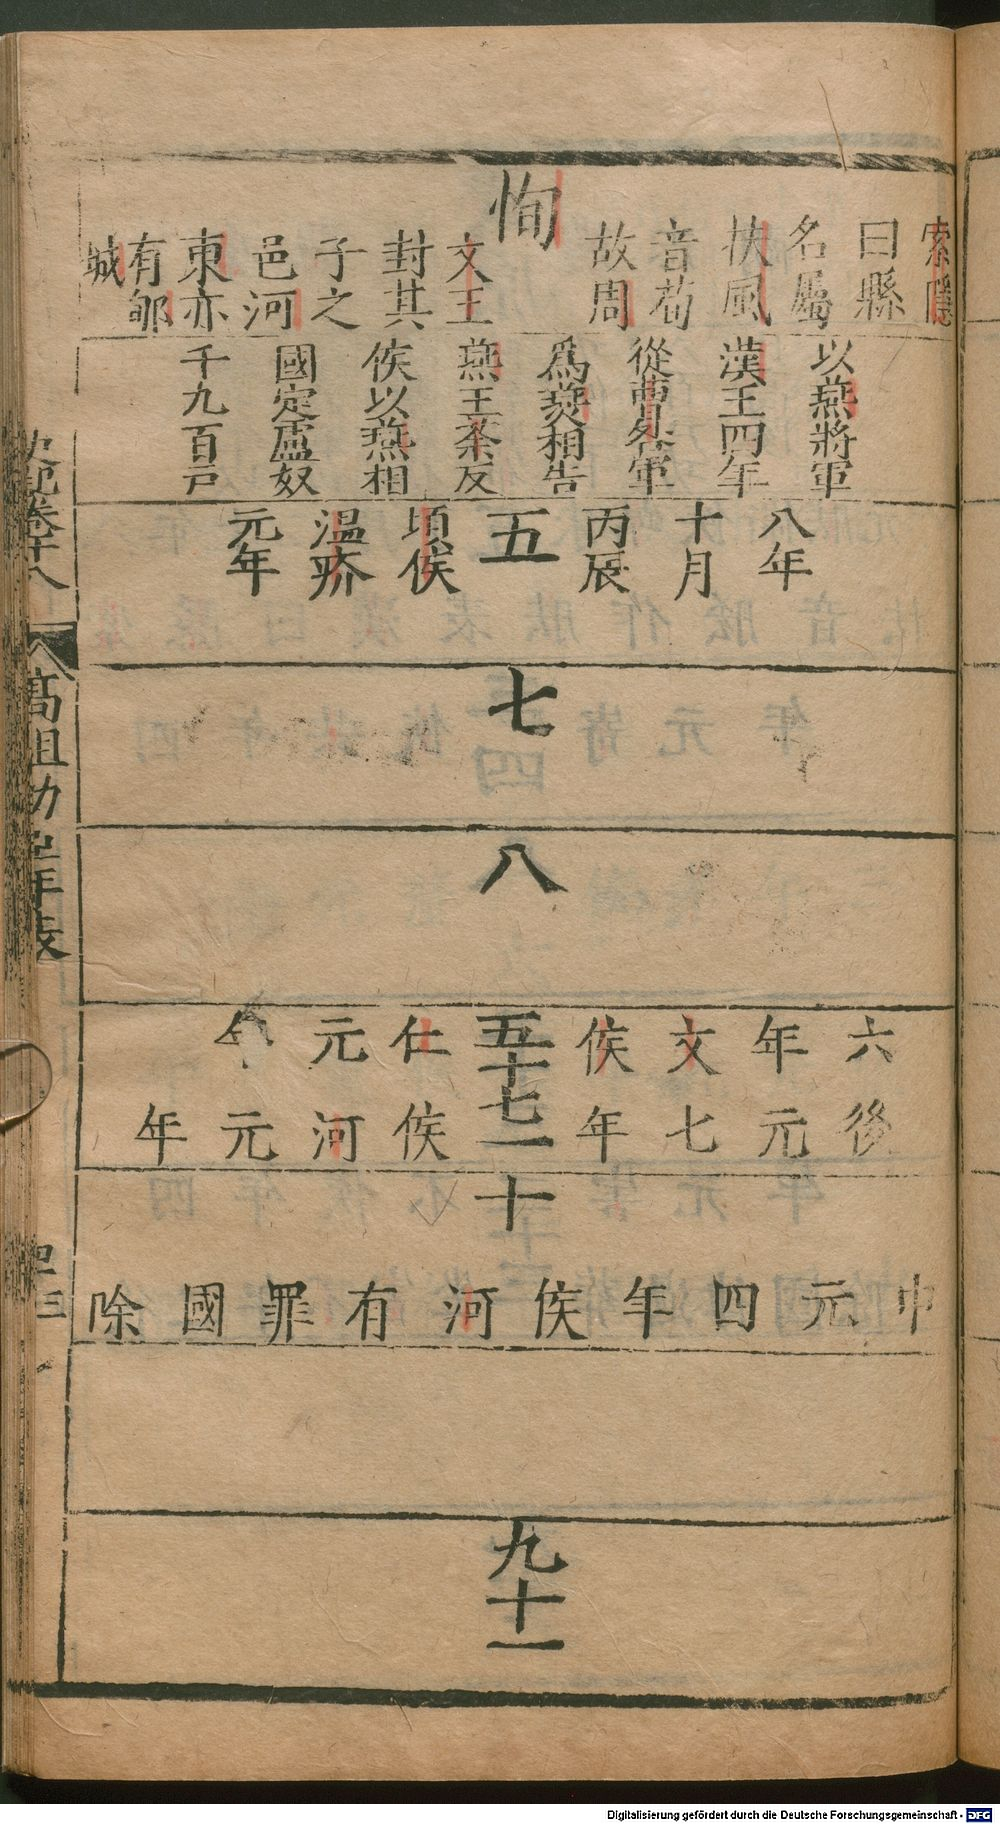 索隱
曰縣
名屬
扶風
音荀
故周
恂
文王
封其
子之
邑河
東亦
有郇
城
以燕將軍
漢王四年
從曹咎軍
爲燕相告
燕王荼反
侯以燕相
國定盧奴
千九百戸
八年
十月
丙辰
五
頃侯
溫疥
元年
七
八
六年文侯仁元年
五十七一
後元七年侯河元年
十
中元四年侯河有罪國除
九十一
史記卷十八
高祖功臣年表
Digitalisierung gefördert durch die Deutsche Forschungsgemeinschaft - DFG